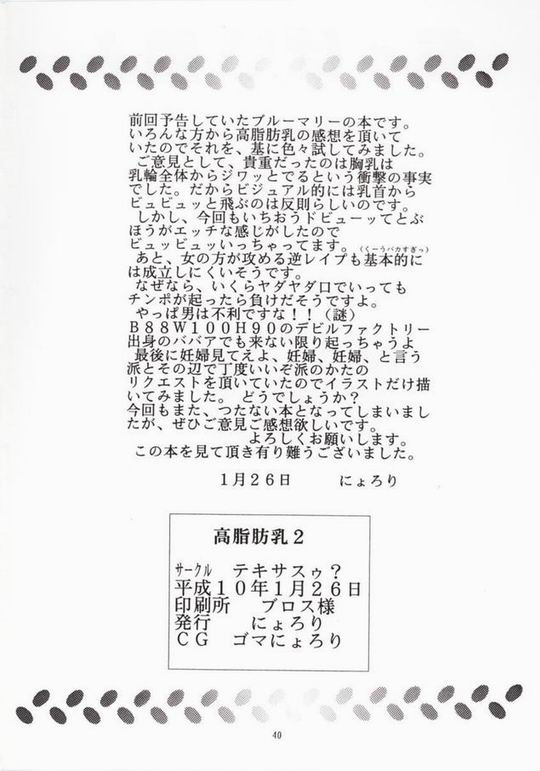 前回予告していたブルーマリーの本です。
いろんな方から高脂肪乳の感想を頂いて
いたのでそれを、基に色々試してみました。
ご意見として、貴重だったのは胸乳は
乳輪全体からジワッとでるという衝撃の事実
でした。だからビジュアル的には乳首から
ビュビュッと飛ぶのは反則らしいのです。
しかし、今回もいちおうドビューッてとぶ
ほうがエッチな感じがしたので
ビュッビュッいっちゃってます。(くーうバカすぎっ)
あと、女の方が攻める逆レイプも基本的に
は成立しにくいそうです。
なぜなら、いくらヤダヤダ口でいっても
チンポが起ったら負けだそうですよ。
やっぱ男は不利ですな!!(謎)
B88W100H90のデビルファクトリー
出身のババアでも来ない限り起っちゃうよ
最後に妊婦見てえよ、妊婦、妊婦、と言う
派とその辺で丁度いいぞ派のかたの
リクエストを頂いていたのでイラストだけ描
いてみました。 どうでしょうか?
今回もまた、つたない本となってしまいまし
たが、ぜひご意見ご感想欲しいです。
よろしくお願いします。
この本を見て頂き有り難うございました。
1月26日 にょろり
高脂肪乳2
サークル テキサスゥ?
平成10年1月26日
印刷所 ブロス様
発行 にょろり
CG ゴマにょろり
40